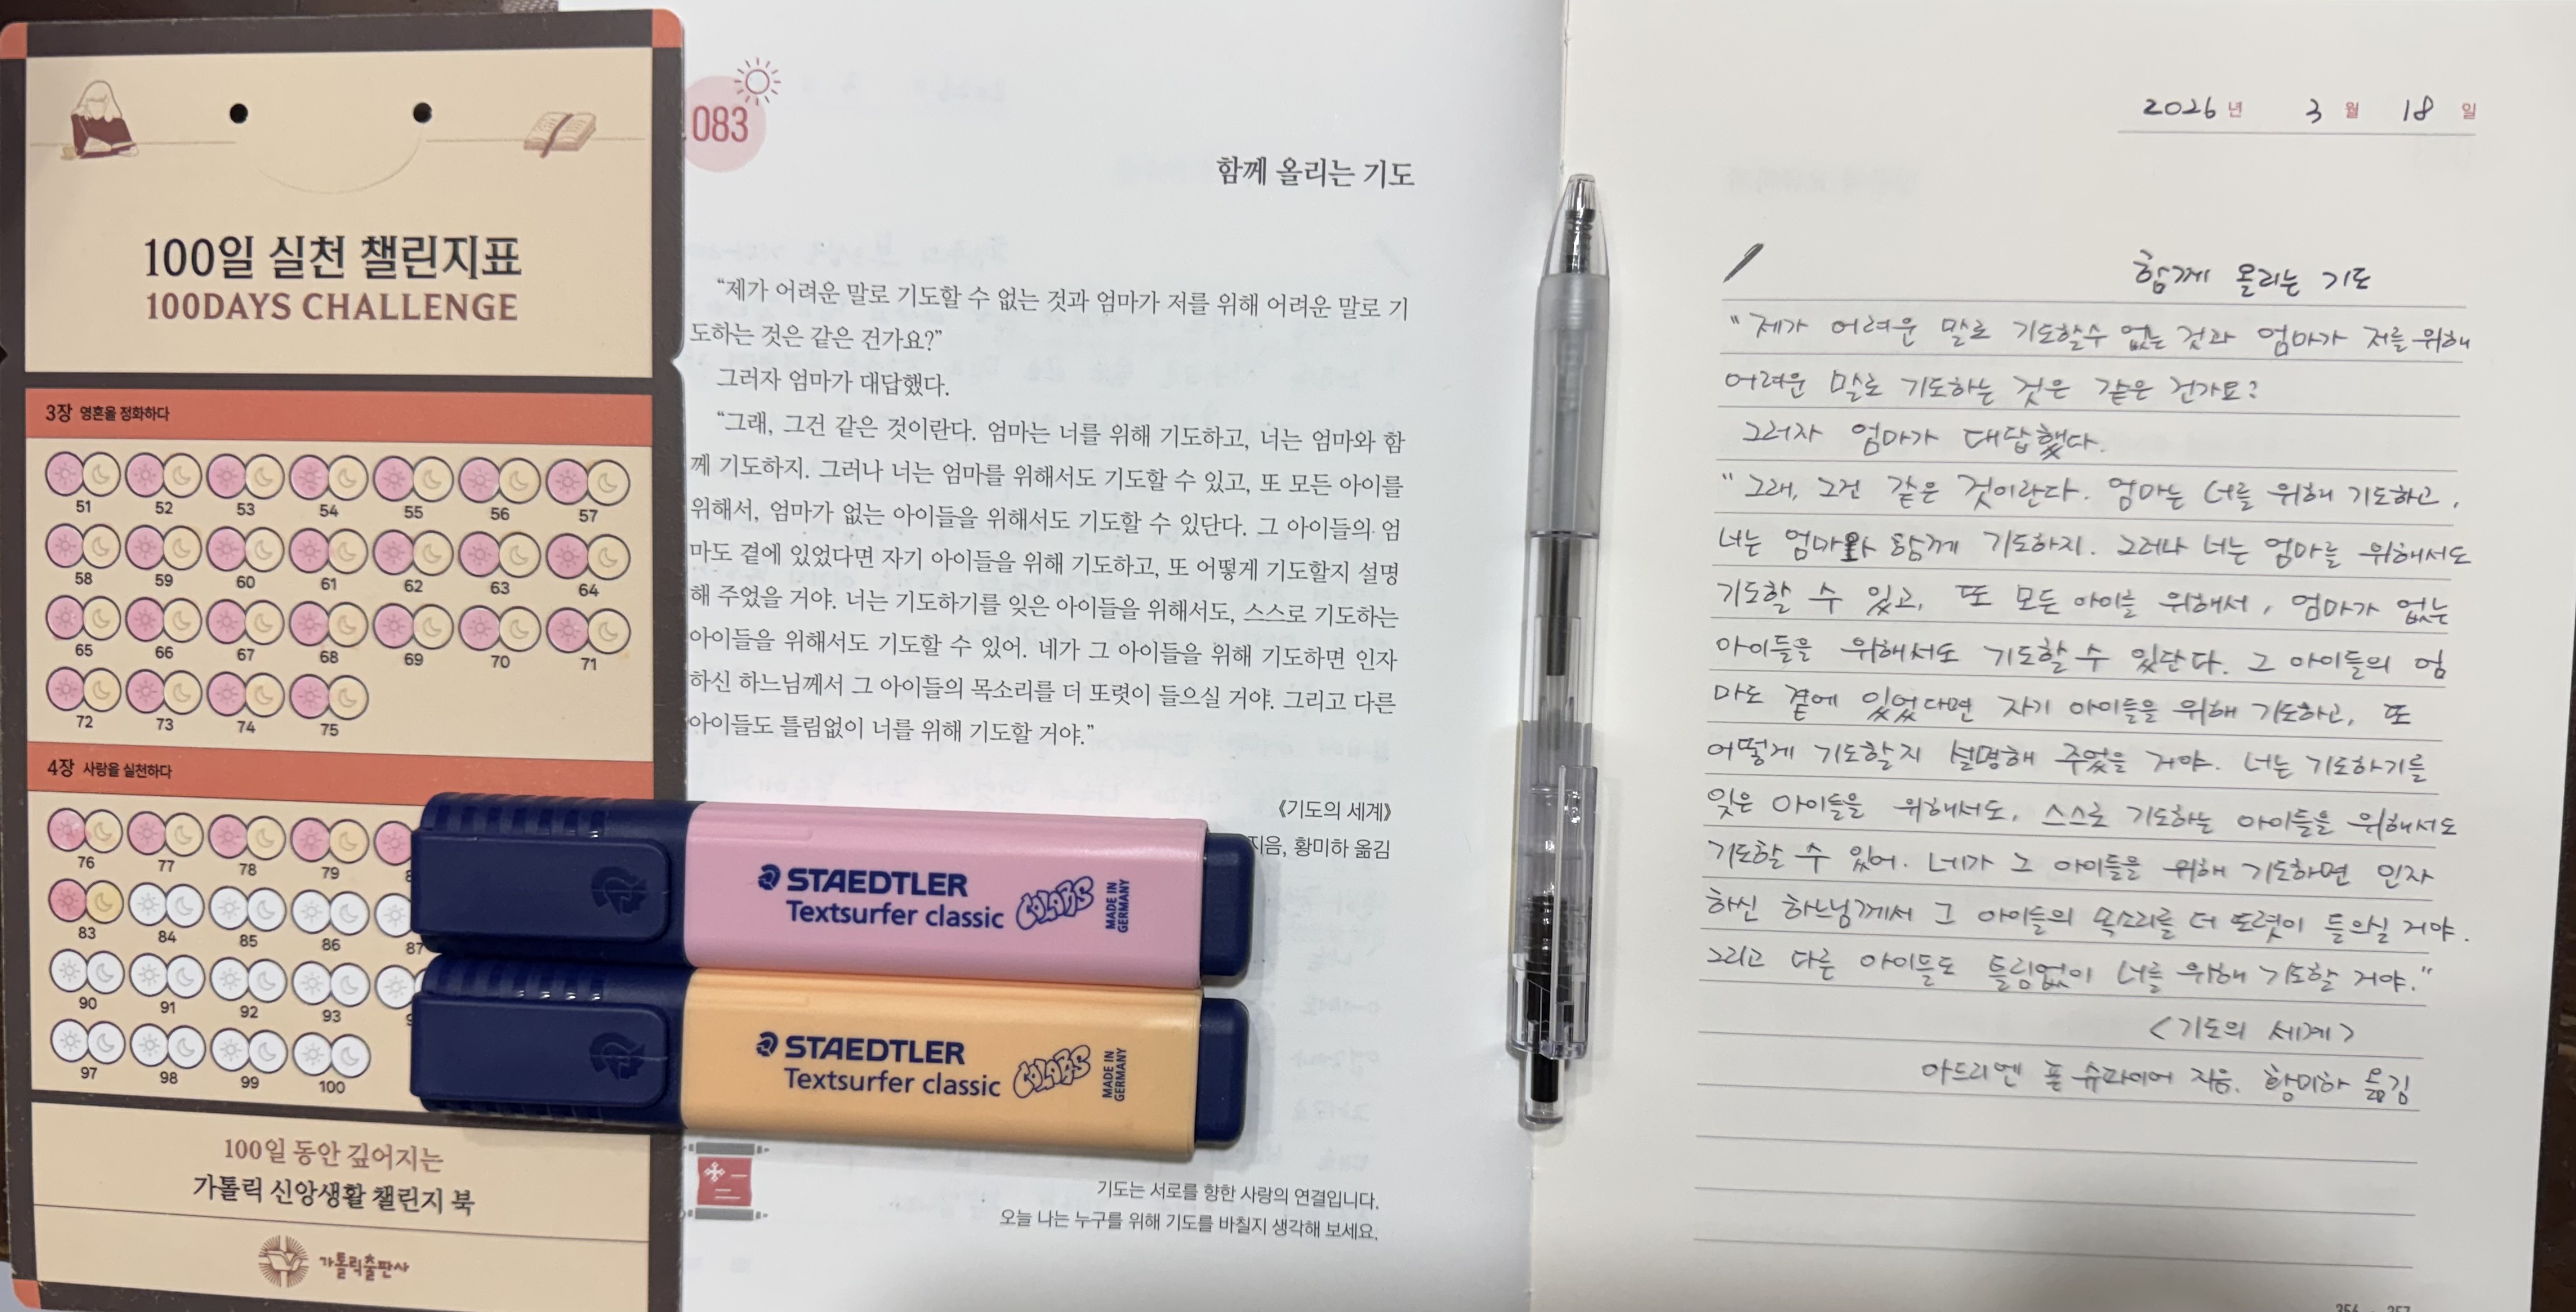 100일 실천 챌린지표
100DAYS CHALLENGE
3장 영혼을 정화하다
51 52 53 54 55 56 57
58 59 60 61 62 63 64
65 66 67 68 69 70 71
72 73 74 75
4장 사랑을 실천하다
76 77 78 79 8
83 84 85 86 87
90 91 92 93 9
97 98 99 100
100일 동안 깊어지는
가톨릭 신앙생활 챌린지 북
가톨릭출판사
083
함께 올리는 기도
“제가 어려운 말로 기도할 수 없는 것과 엄마가 저를 위해 어려운 말로 기
도하는 것은 같은 건가요?”
그러자 엄마가 대답했다.
“그래, 그건 같은 것이란다. 엄마는 너를 위해 기도하고, 너는 엄마와 함
께 기도하지. 그러나 너는 엄마를 위해서도 기도할 수 있고, 또 모든 아이를
위해서, 엄마가 없는 아이들을 위해서도 기도할 수 있단다. 그 아이들의 엄
마도 곁에 있었다면 자기 아이들을 위해 기도하고, 또 어떻게 기도할지 설명
해 주었을 거야. 너는 기도하기를 잊은 아이들을 위해서도, 스스로 기도하는
아이들을 위해서도 기도할 수 있어. 네가 그 아이들을 위해 기도하면 인자
하신 하느님께서 그 아이들의 목소리를 더 또렷이 들으실 거야. 그리고 다른
아이들도 틀림없이 너를 위해 기도할 거야.”
《기도의 세계》
지음, 황미하 옮김
STAEDTLER
Textsurfer classic
COLORS
MADE IN
GERMANY
STAEDTLER
Textsurfer classic
COLORS
MADE IN
GERMANY
기도는 서로를 향한 사랑의 연결입니다.
오늘 나는 누구를 위해 기도를 바칠지 생각해 보세요.
2026년 3월 18일
함께 올리는 기도
"제가 어려운 말로 기도할수 없는 것과 엄마가 저를 위해
어려운 말로 기도하는 것은 같은 건가요?
그러자 엄마가 대답했다.
"그래, 그건 같은 것이란다. 엄마는 너를 위해 기도하고,
너는 엄마와 함께 기도하지. 그러나 너는 엄마를 위해서도
기도할 수 있고, 또 모든 아이를 위해서, 엄마가 없는
아이들을 위해서도 기도할 수 있단다. 그 아이들의 엄
마도 곁에 있었다면 자기 아이들을 위해 기도하고, 또
어떻게 기도할지 설명해 주었을 거야. 너는 기도하기를
잊은 아이들을 위해서도, 스스로 기도하는 아이들을 위해서도
기도할 수 있어. 네가 그 아이들을 위해 기도하면 인자
하신 하느님께서 그 아이들의 목소리를 더 또렷이 들으실 거야.
그리고 다른 아이들도 틀림없이 너를 위해 기도할 거야."
<기도의 세계>
아드리엔 폰 슈파이어 지음. 황미하 옮김